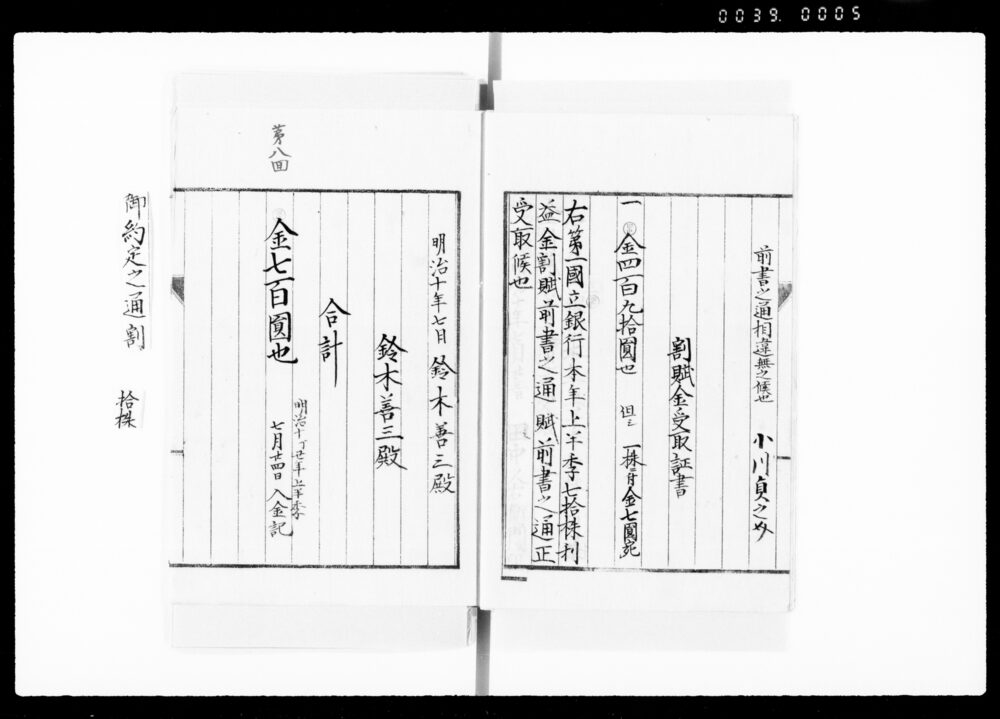 0039. 0005
前書之通相違無之候也
小川貞之
割賦金受取証書
一 金四百九拾圓也 但シ 一株ニ付金七圓宛
右第一國立銀行本年上半季七拾株利
益金割賦前書之通賦前書之通正
受取候也
明治十年七日 鈴木善三殿
鈴木善三殿
合計
第八回
金七百圓也
明治十丁丑年上半季
七月廿四日入金記
御約定之通割
拾株